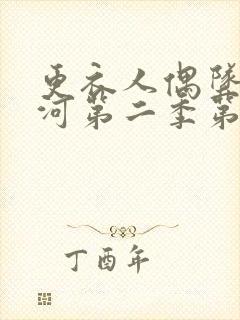 更衣人偶墜
河第二季第
丁酉年